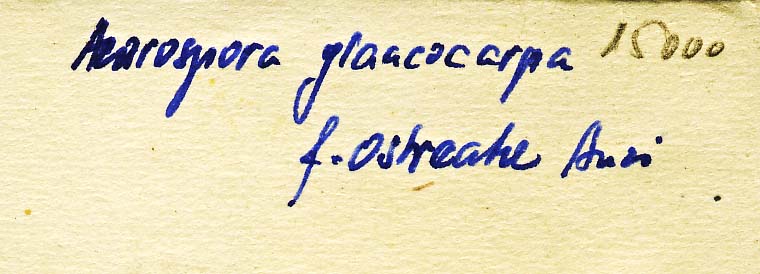 Acarospora glaucocarpa 15000
f. ostreatae Anzi